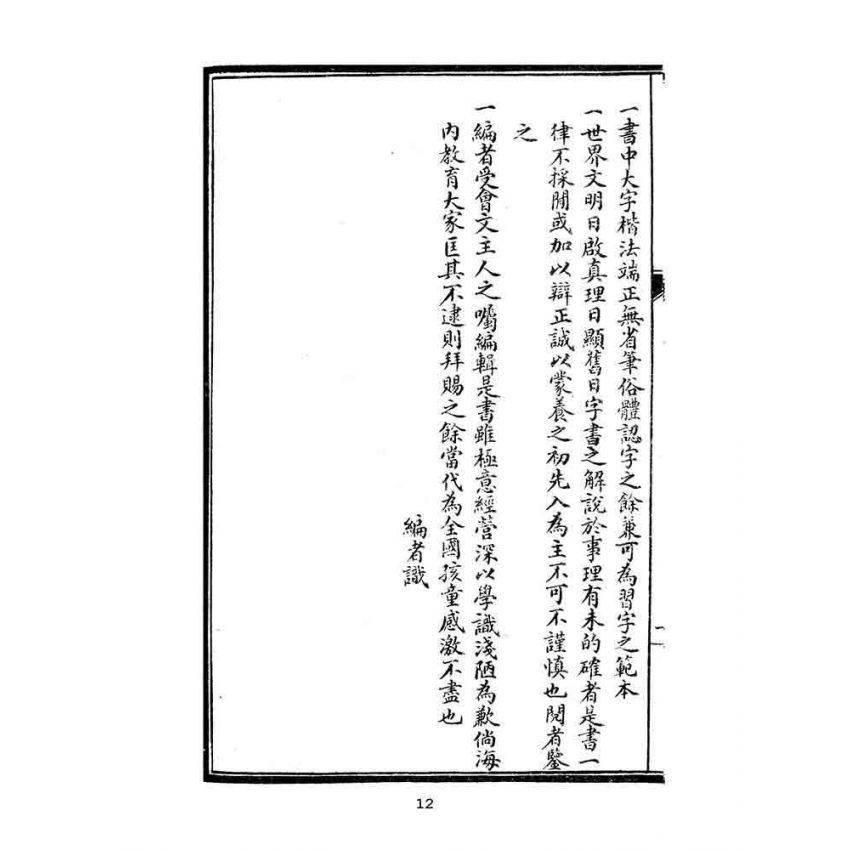 一書中大字楷法端正無省筆俗體認字之餘兼可為習字之範本
一世界文明日啟真理日顯舊日字書之解說於事理有未的確者是書一
律不採閒或加以辯正誠以蒙養之初先入為主不可不謹慎也閱者鑒
之
一編者受會文主人之囑編輯是書雖極意經營深以學識淺陋為歉倘海
內教育大家匡其不逮則拜賜之餘當代為全國孩童感激不盡也
編者識
12